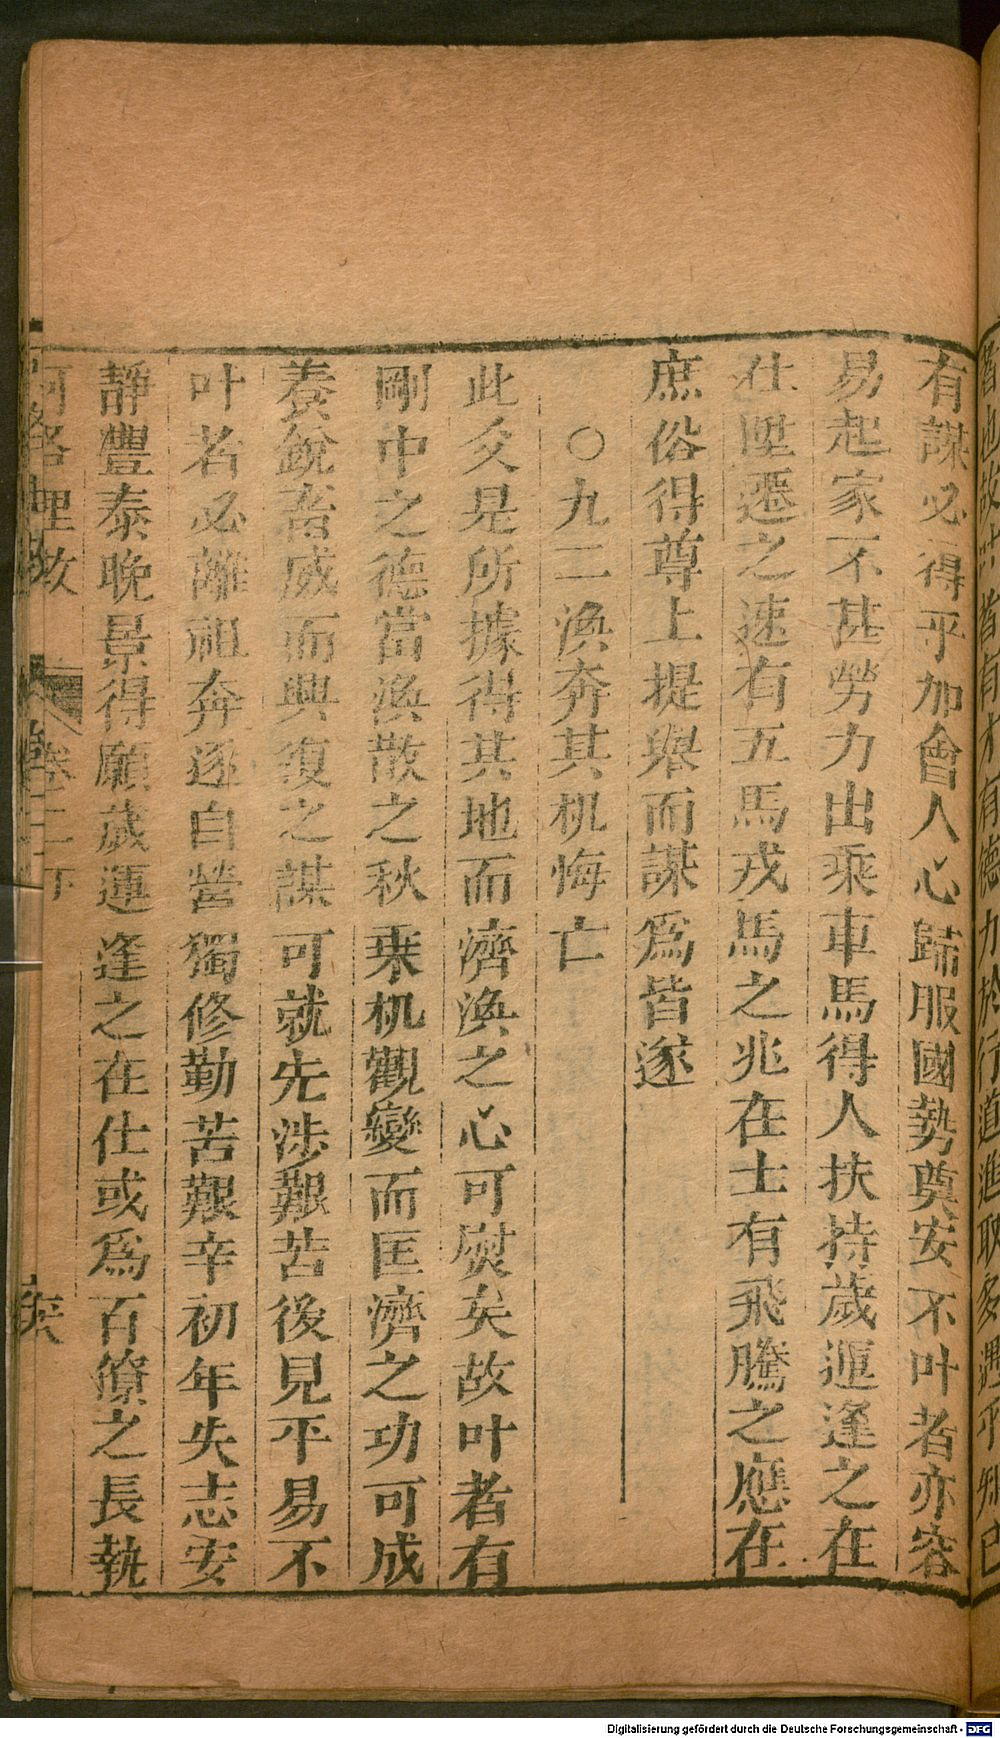 者也故叶者有才有德力於行道進取多遇平
有謀必得乎加會人心歸服國勢奠安不叶者亦容
易起家不甚勞力出乘車馬得人扶持歲運逢之在
仕陞遷之速有五馬戎馬之兆在士有飛騰之應在
庶俗得尊上提舉而謀爲皆遂
○九二渙奔其机悔亡
此爻是所據得其地而濟渙之心可慰矣故叶者有
剛中之德當渙散之秋乗机觀變而匡濟之功可成
養銳畜威而興復之謀可就先涉艱苦後見平易不
叶者必離祖奔逐自營獨修勤苦艱辛初年失志安
靜豐泰晚景得願歲運逢之在仕或爲百僚之長執
河洛理數 卷二下
Digitalisierung gefördert durch die Deutsche Forschungsgemeinschaft - DFG